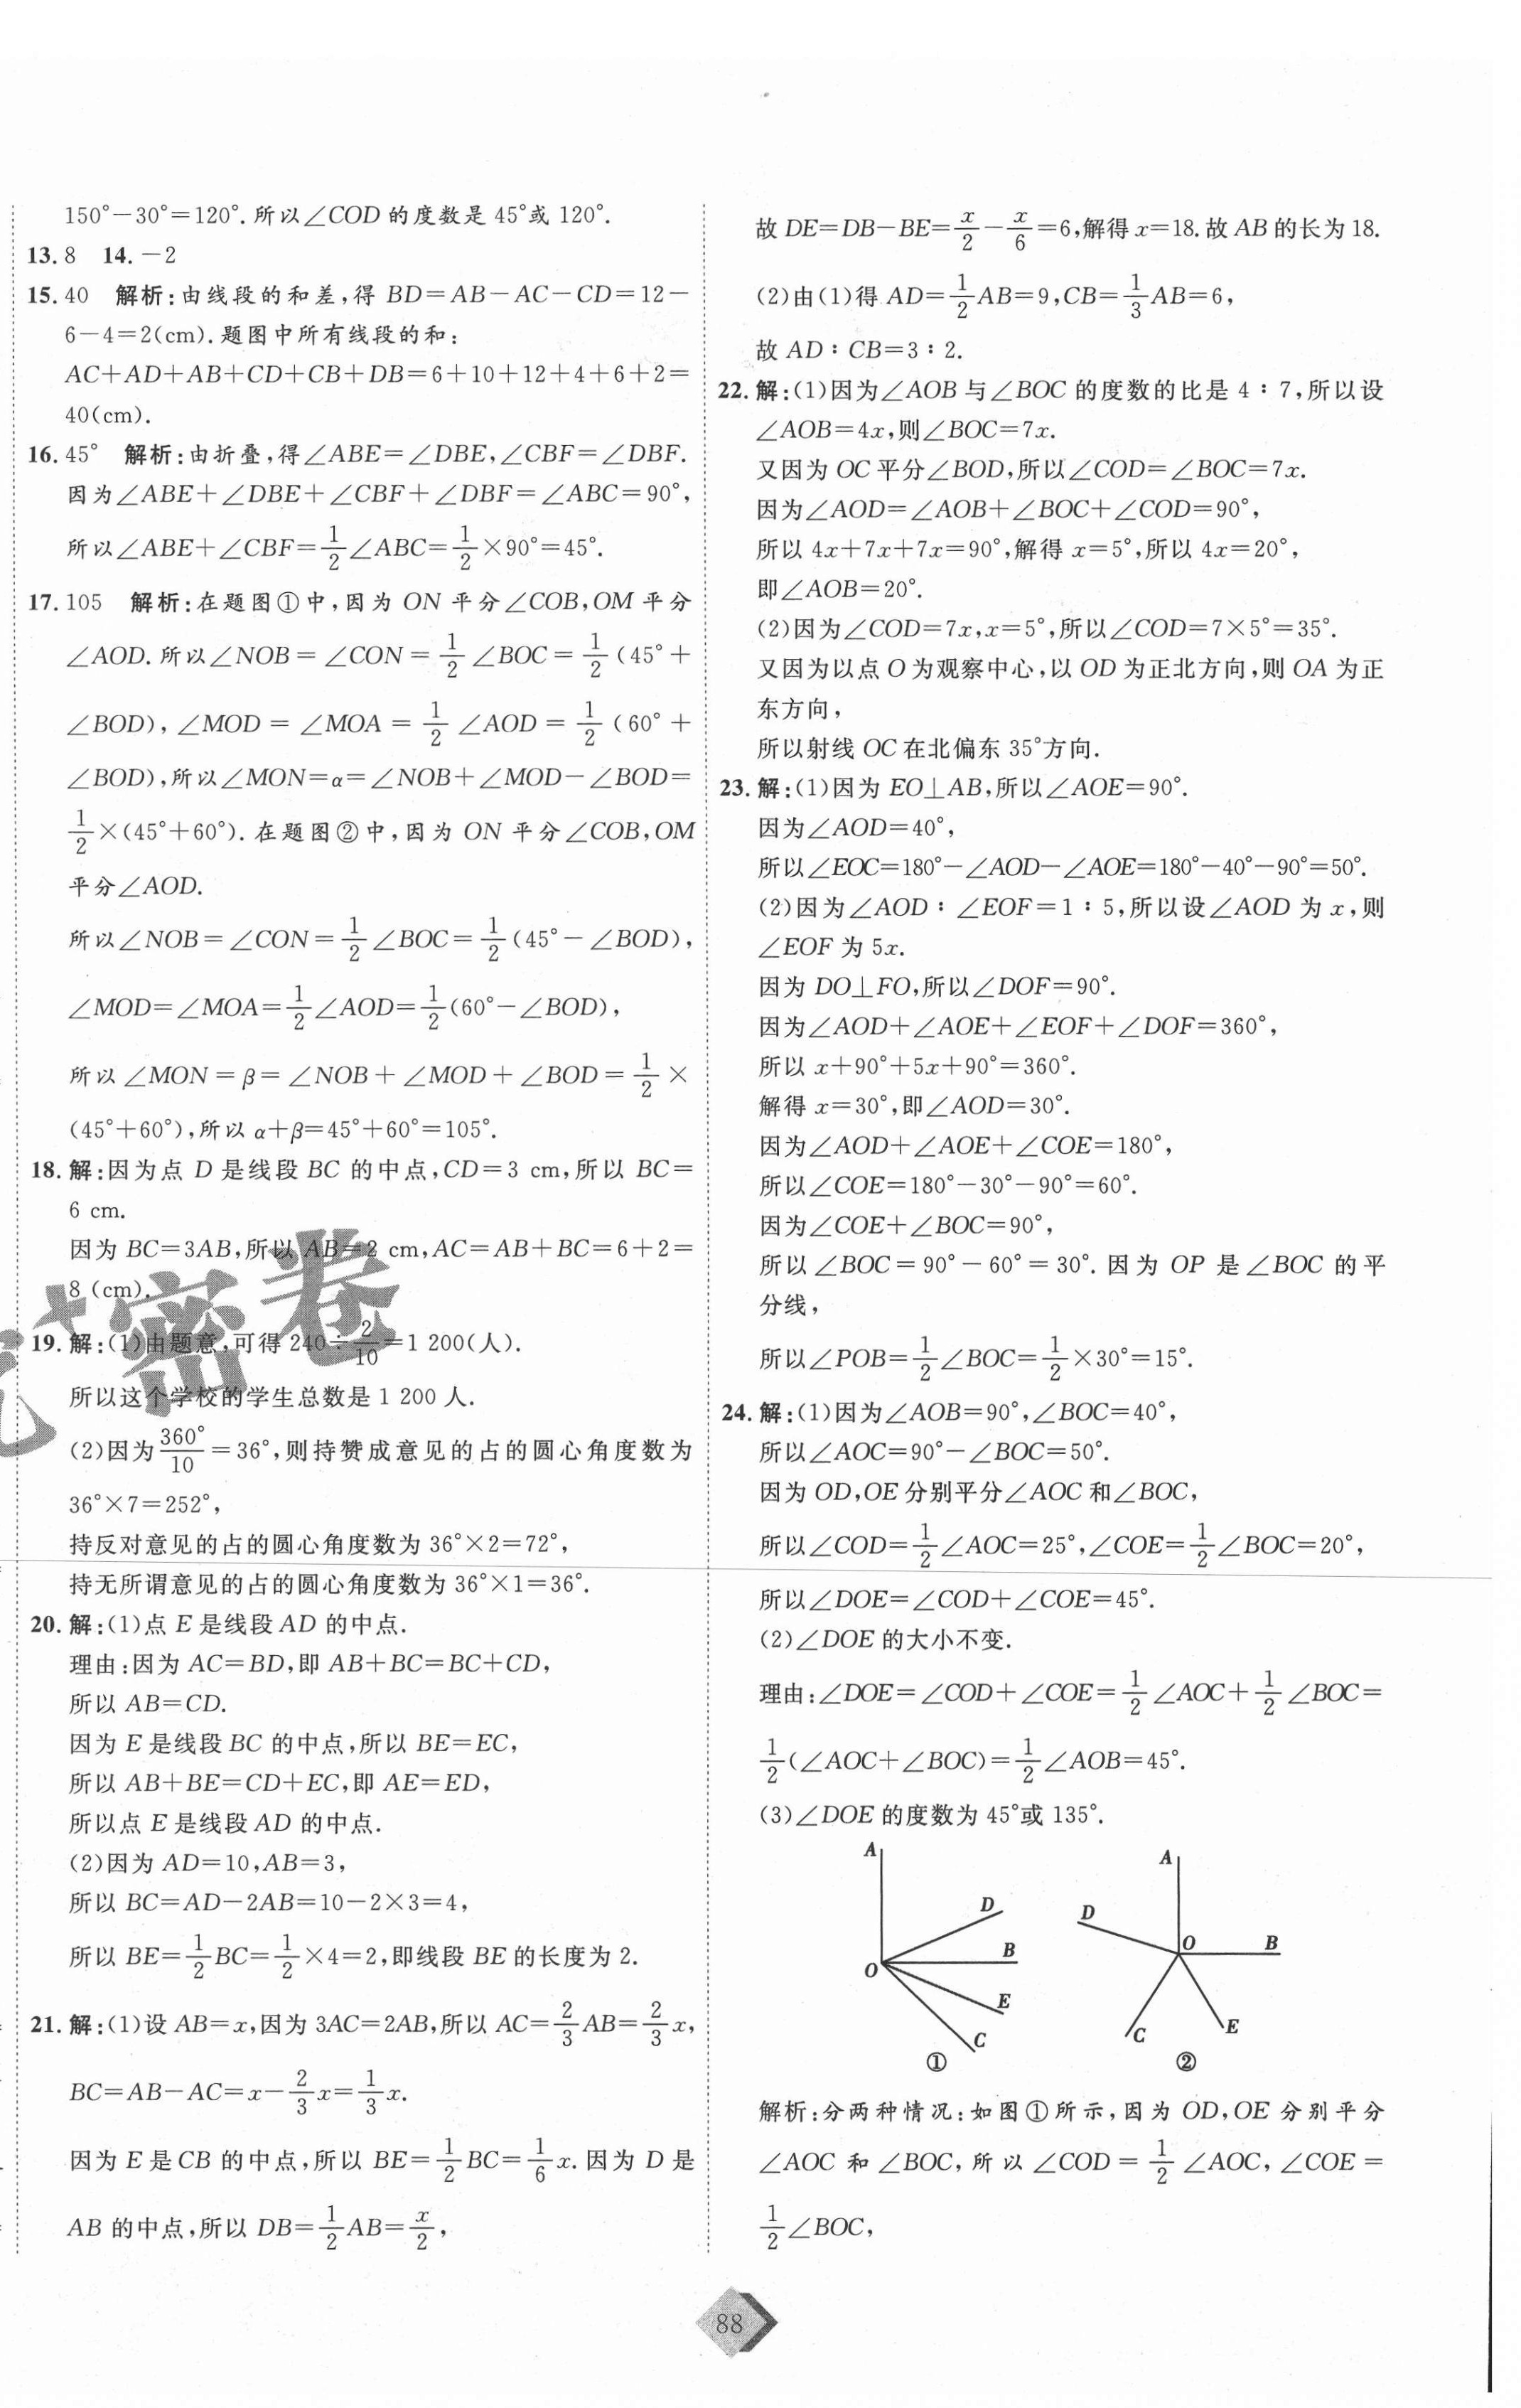 150°－30°＝120°.所以∠COD 的度数是 45°或 120°.
13. 8　14. －2
15. 40　解析:由线段的和差,得 BD＝AB－AC－CD＝12－
6－4＝2(cm).题图中所有线段的和:
AC＋AD＋AB＋CD＋CB＋DB＝6＋10＋12＋4＋6＋2＝
40(cm).
16. 45°　解析:由折叠,得∠ABE＝∠DBE,∠CBF＝∠DBF.
因为∠ABE＋∠DBE＋∠CBF＋∠DBF＝∠ABC＝90°,
所以∠ABE＋∠CBF＝1/2∠ABC＝1/2×90°＝45°.
17. 105　解析:在题图①中,因为 ON 平分∠COB,OM 平分
∠AOD.所以∠NOB＝∠CON＝1/2∠BOC＝1/2(45°＋
∠BOD),∠MOD＝∠MOA＝1/2∠AOD＝1/2(60°＋
∠BOD),所以∠MON＝α＝∠NOB＋∠MOD－∠BOD＝
1/2×(45°＋60°).在题图②中,因为 ON 平分∠COB,OM
平分∠AOD.
所以∠NOB＝∠CON＝1/2∠BOC＝1/2(45°－∠BOD),
∠MOD＝∠MOA＝1/2∠AOD＝1/2(60°－∠BOD),
所以∠MON＝β＝∠NOB＋∠MOD＋∠BOD＝1/2×
(45°＋60°),所以 α＋β＝45°＋60°＝105°.
18. 解:因为点 D 是线段 BC 的中点,CD＝3 cm,所以 BC＝
6 cm.
因为 BC＝3AB,所以 AB＝2 cm,AC＝AB＋BC＝6＋2＝
8 (cm).
19. 解:(1)由题意,可得 240÷2/10＝1 200(人).
所以这个学校的学生总数是 1 200 人.
(2)因为360°/10＝36°,则持赞成意见的占的圆心角度数为
36°×7＝252°,
持反对意见的占的圆心角度数为 36°×2＝72°,
持无所谓意见的占的圆心角度数为 36°×1＝36°.
20. 解:(1)点 E 是线段 AD 的中点.
理由:因为 AC＝BD,即 AB＋BC＝BC＋CD,
所以 AB＝CD.
因为 E 是线段 BC 的中点,所以 BE＝EC,
所以 AB＋BE＝CD＋EC,即 AE＝ED,
所以点 E 是线段 AD 的中点.
(2)因为 AD＝10,AB＝3,
所以 BC＝AD－2AB＝10－2×3＝4,
所以 BE＝1/2BC＝1/2×4＝2,即线段 BE 的长度为 2.
21. 解:(1)设 AB＝x,因为 3AC＝2AB,所以 AC＝2/3AB＝2/3x,
BC＝AB－AC＝x－2/3x＝1/3x.
因为 E 是 CB 的中点,所以 BE＝1/2BC＝1/6x.因为 D 是
AB 的中点,所以 DB＝1/2AB＝x/2,
故 DE＝DB－BE＝x/2－x/6＝6,解得 x＝18.故 AB 的长为 18.
(2)由(1)得 AD＝1/2AB＝9,CB＝1/3AB＝6,
故 AD∶CB＝3∶2.
22. 解:(1)因为∠AOB 与∠BOC 的度数的比是 4∶7,所以设
∠AOB＝4x,则∠BOC＝7x.
又因为 OC 平分∠BOD,所以∠COD＝∠BOC＝7x.
因为∠AOD＝∠AOB＋∠BOC＋∠COD＝90°,
所以 4x＋7x＋7x＝90°,解得 x＝5°,所以 4x＝20°,
即∠AOB＝20°.
(2)因为∠COD＝7x,x＝5°,所以∠COD＝7×5°＝35°.
又因为以点 O 为观察中心,以 OD 为正北方向,则 OA 为正
东方向,
所以射线 OC 在北偏东 35°方向.
23. 解:(1)因为 EO⊥AB,所以∠AOE＝90°.
因为∠AOD＝40°,
所以∠EOC＝180°－∠AOD－∠AOE＝180°－40°－90°＝50°.
(2)因为∠AOD∶∠EOF＝1∶5,所以设∠AOD 为 x,则
∠EOF 为 5x.
因为 DO⊥FO,所以∠DOF＝90°.
因为∠AOD＋∠AOE＋∠EOF＋∠DOF＝360°,
所以 x＋90°＋5x＋90°＝360°.
解得 x＝30°,即∠AOD＝30°.
因为∠AOD＋∠AOE＋∠COE＝180°,
所以∠COE＝180°－30°－90°＝60°.
因为∠COE＋∠BOC＝90°,
所以∠BOC＝90°－60°＝30°.因为 OP 是∠BOC 的平
分线,
所以∠POB＝1/2∠BOC＝1/2×30°＝15°.
24. 解:(1)因为∠AOB＝90°,∠BOC＝40°,
所以∠AOC＝90°－∠BOC＝50°.
因为 OD,OE 分别平分∠AOC 和∠BOC,
所以∠COD＝1/2∠AOC＝25°,∠COE＝1/2∠BOC＝20°,
所以∠DOE＝∠COD＋∠COE＝45°.
(2)∠DOE 的大小不变.
理由:∠DOE＝∠COD＋∠COE＝1/2∠AOC＋1/2∠BOC＝
1/2(∠AOC＋∠BOC)＝1/2∠AOB＝45°.
(3)∠DOE 的度数为 45°或 135°.
A
D
B
O
E
C
①
A
D
O
B
C
E
②
解析:分两种情况:如图①所示,因为 OD,OE 分别平分
∠AOC 和∠BOC,所以∠COD＝1/2∠AOC,∠COE＝
1/2∠BOC,
密卷
88